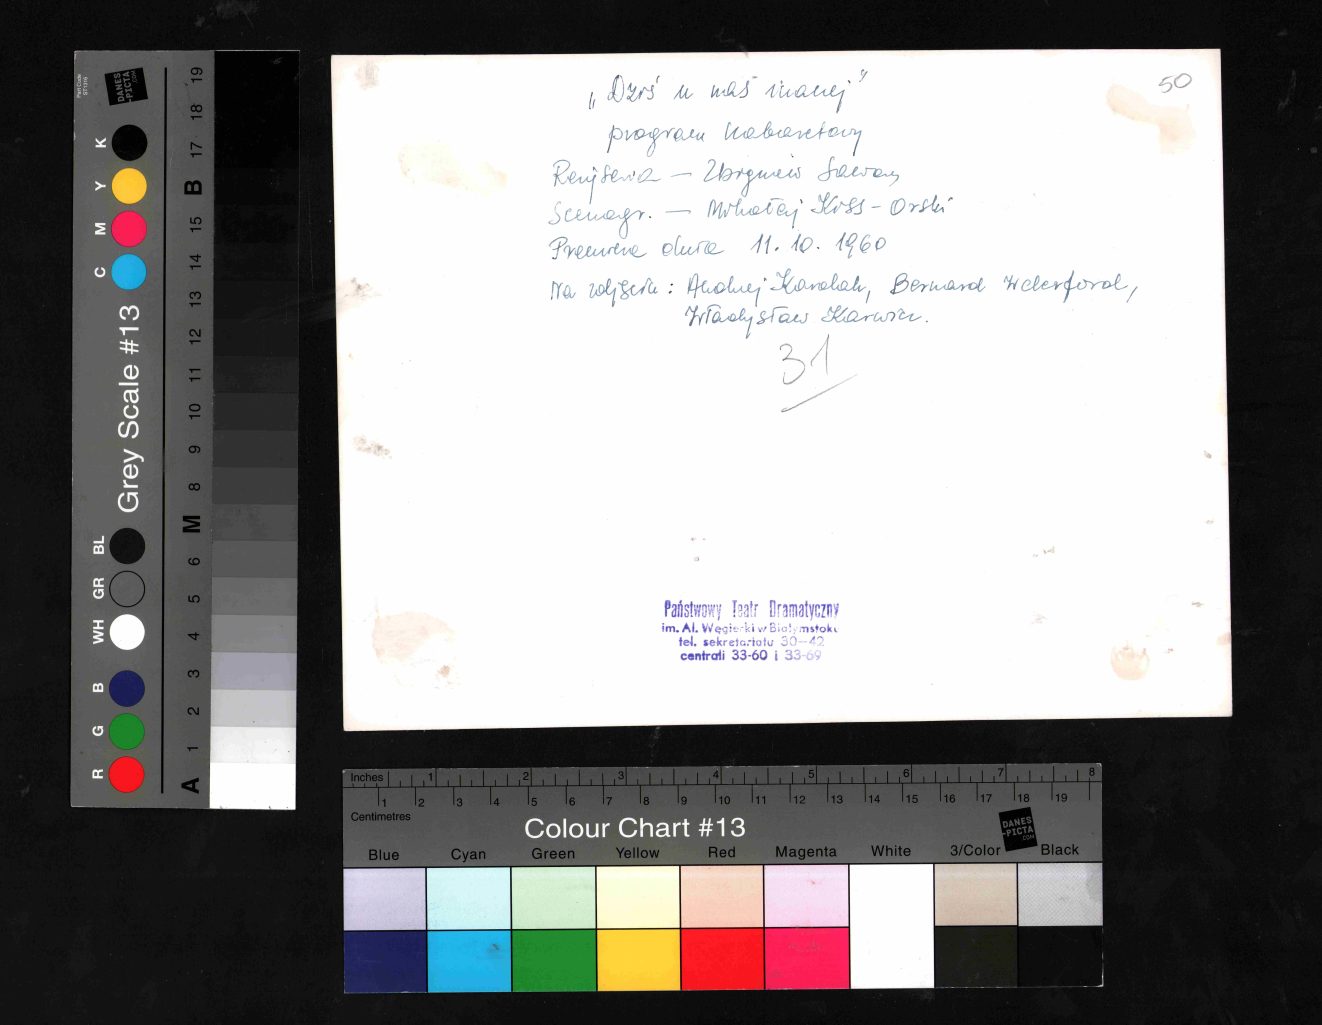 50
„Dziś u nas inaczej”
program kabaretowy
Reżyseria — Zbigniew Sawan
Scenogr. — Mikołaj Kiss-Orski
Premiera dnia 11.10.1960
Na zdjęciu: Andrzej Karolak, Bernard
Władysław Karwin.
31
Państwowy Teatr Dramatyczny
im. Al. Węgierki w Białymstoku
tel. sekretariatu 30-42
centrali 33-60 i 33-69
Part Code
ST1316
DANES
-PICTA
.COM
Grey Scale #13
K Y M C
BL GR WH
B G R
19 18 17 B 15 14 13 12 11 10 9 8 M 6 5 4 3 2 1 A
Inches 1 2 3 4 5 6 7 8
1 2 3 4 5 6 7 8 9 10 11 12 13 14 15 16 17 18 19
Centimetres
Colour Chart #13
DANES
-PICTA
.COM
Blue Cyan Green Yellow Red Magenta White 3/Color Black